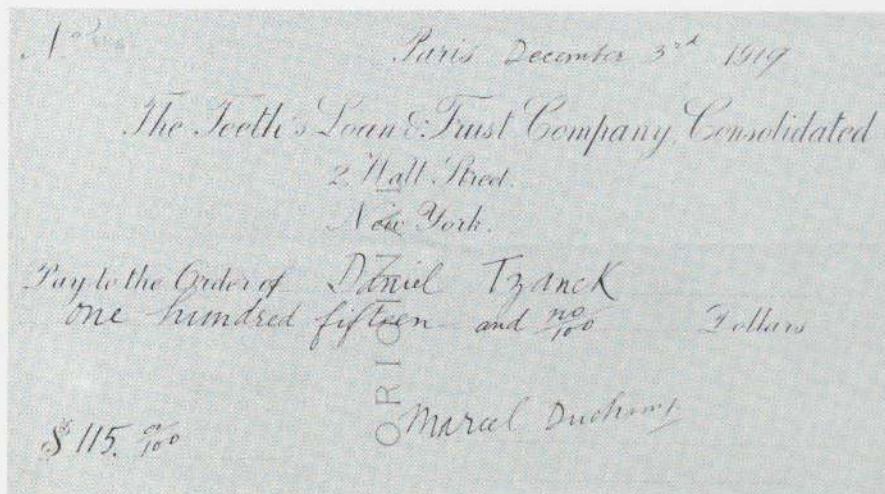 No Paris December 3rd 1919
The Teeth's Loan & Trust Company, Consolidated
2 Wall Street.
New York.
Pay to the Order of Daniel Tzanck
one hundred fifteen and no/100 Dollars
ORIGINAL
Marcel Duchamp
$ 115. no/100